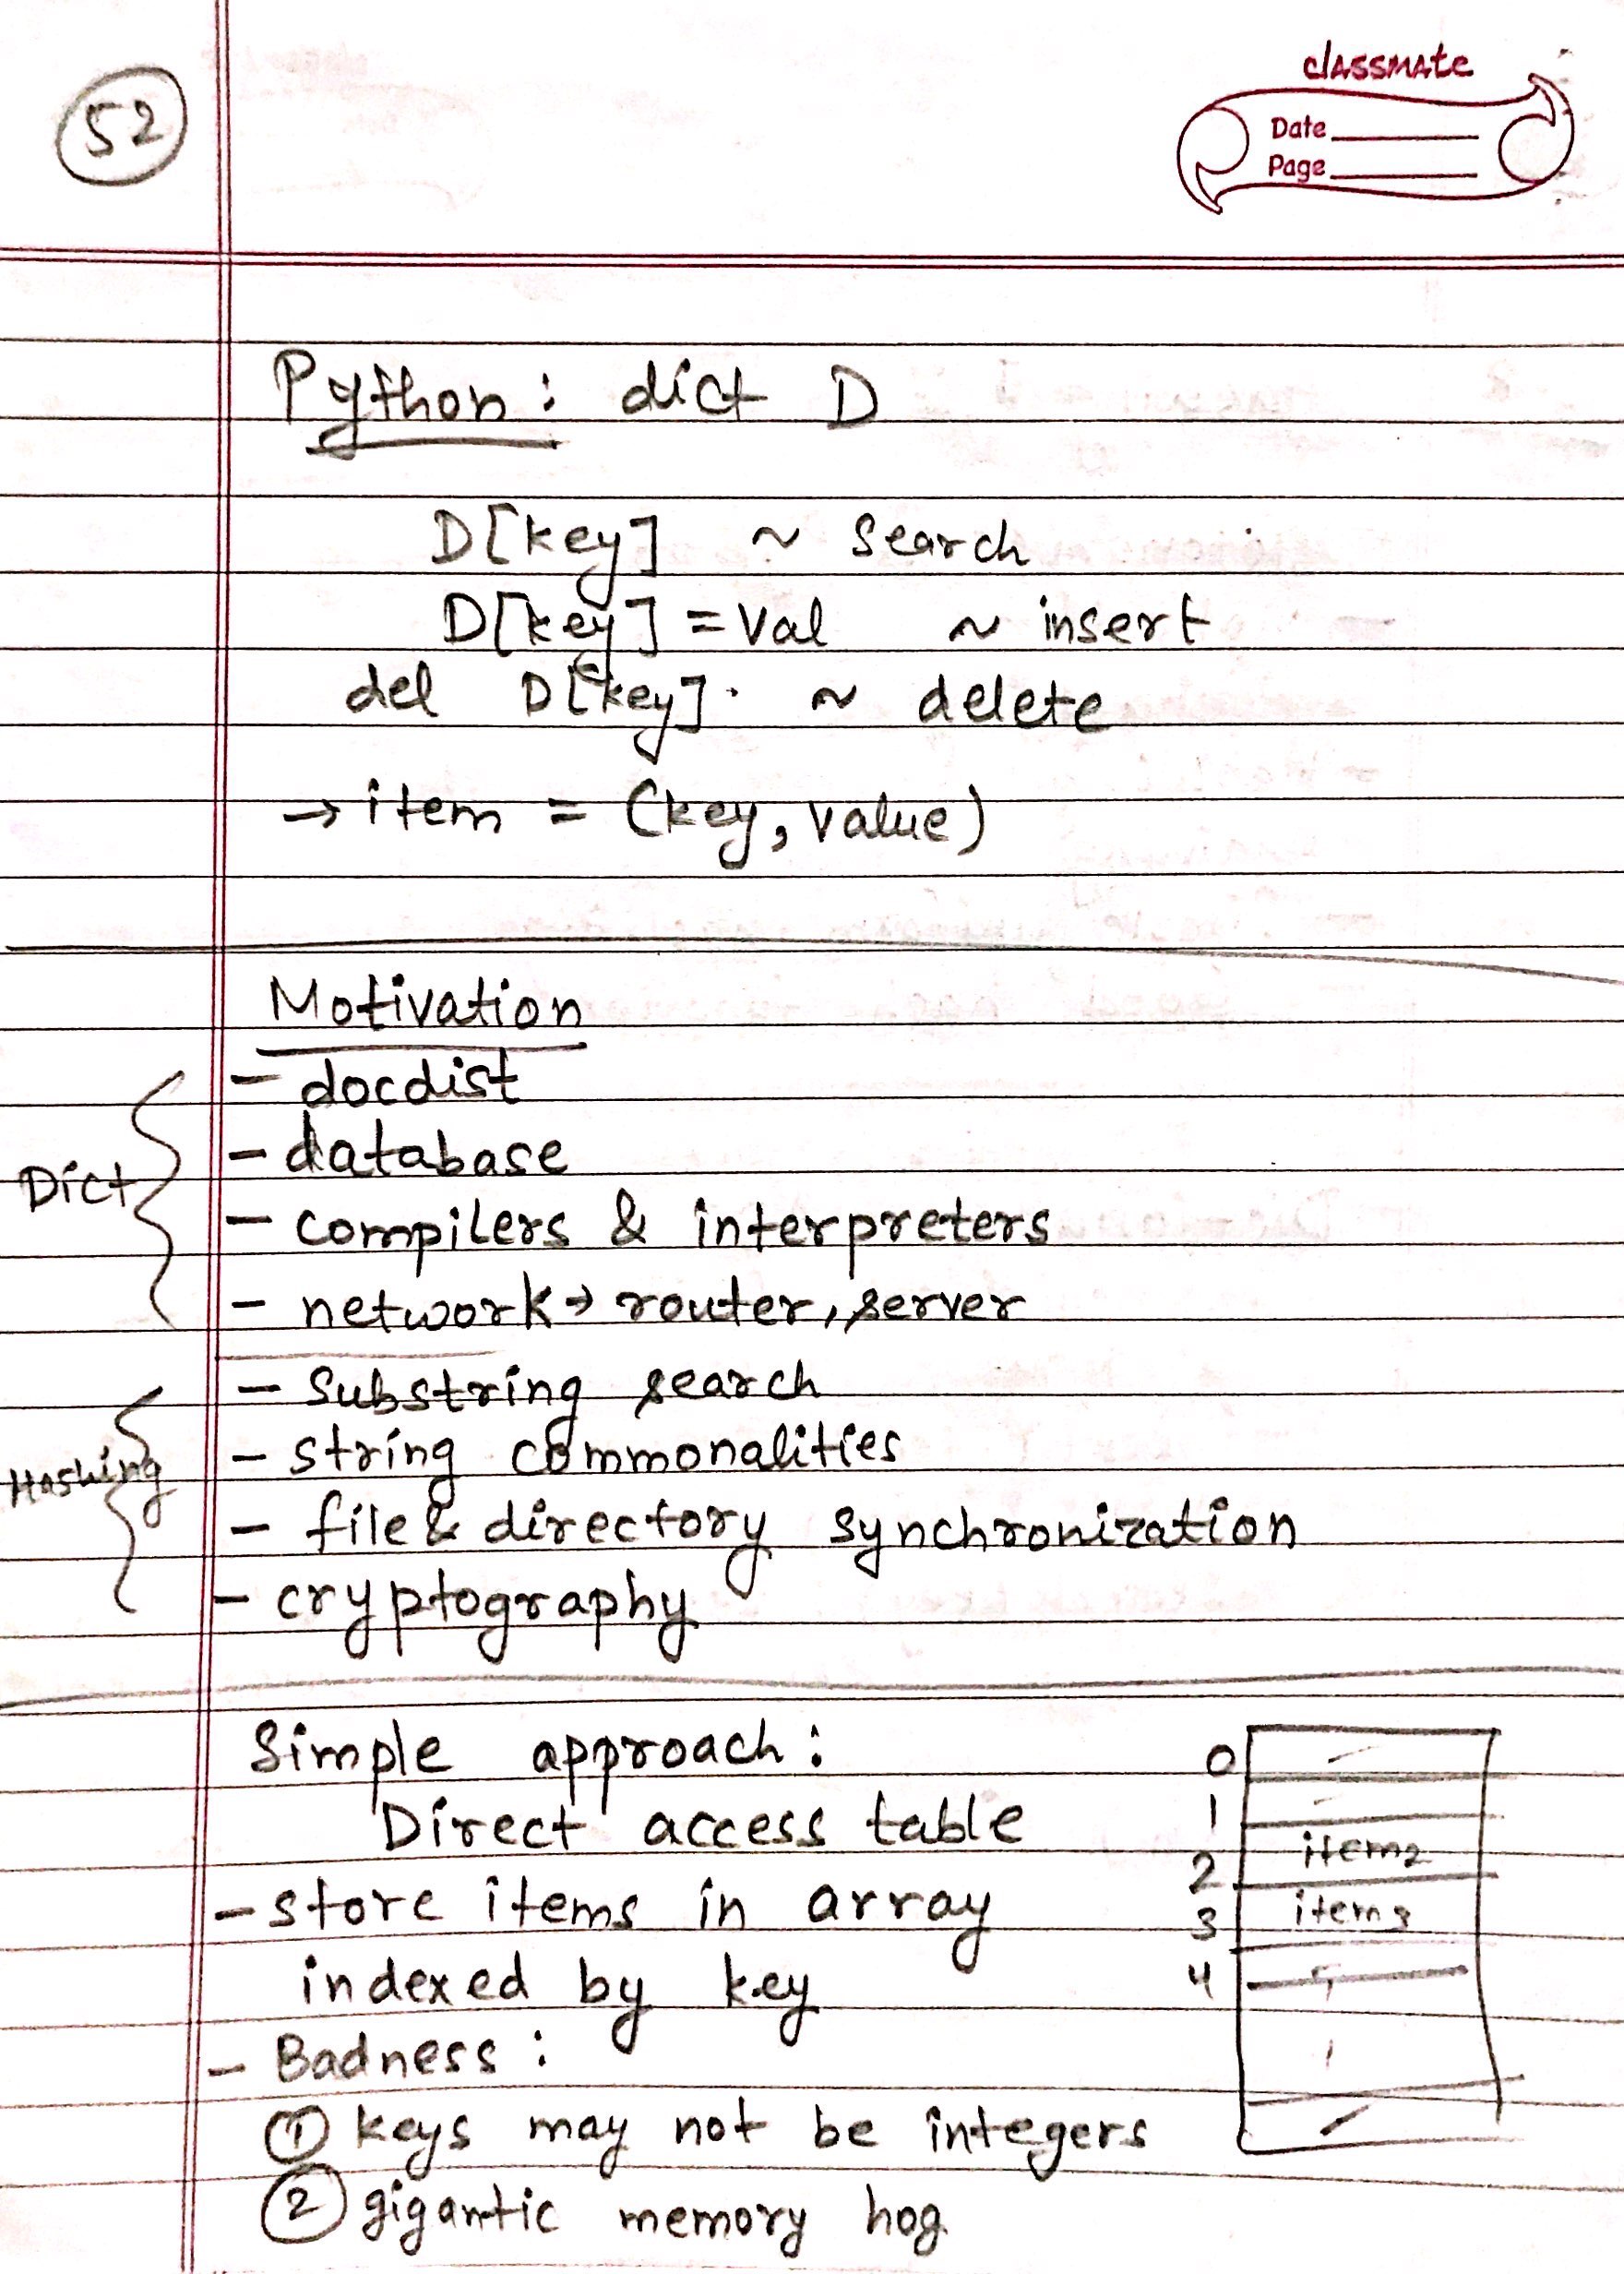 52
classmate
Date
Page
Python: dict D
D[key] ~ search
D[key] = val ~ insert
del D[key]. ~ delete
→ item = (key, value)
Motivation
- docdist
- database
Dict
- compilers & interpreters
- network → router, server
- substring search
- string commonalities
Hashing
- file & directory synchronization
- cryptography
Simple approach:
Direct access table
- store items in array
indexed by key
- Badness:
① keys may not be integers
② gigantic memory hog
0
1
2 item2
3 item3
4